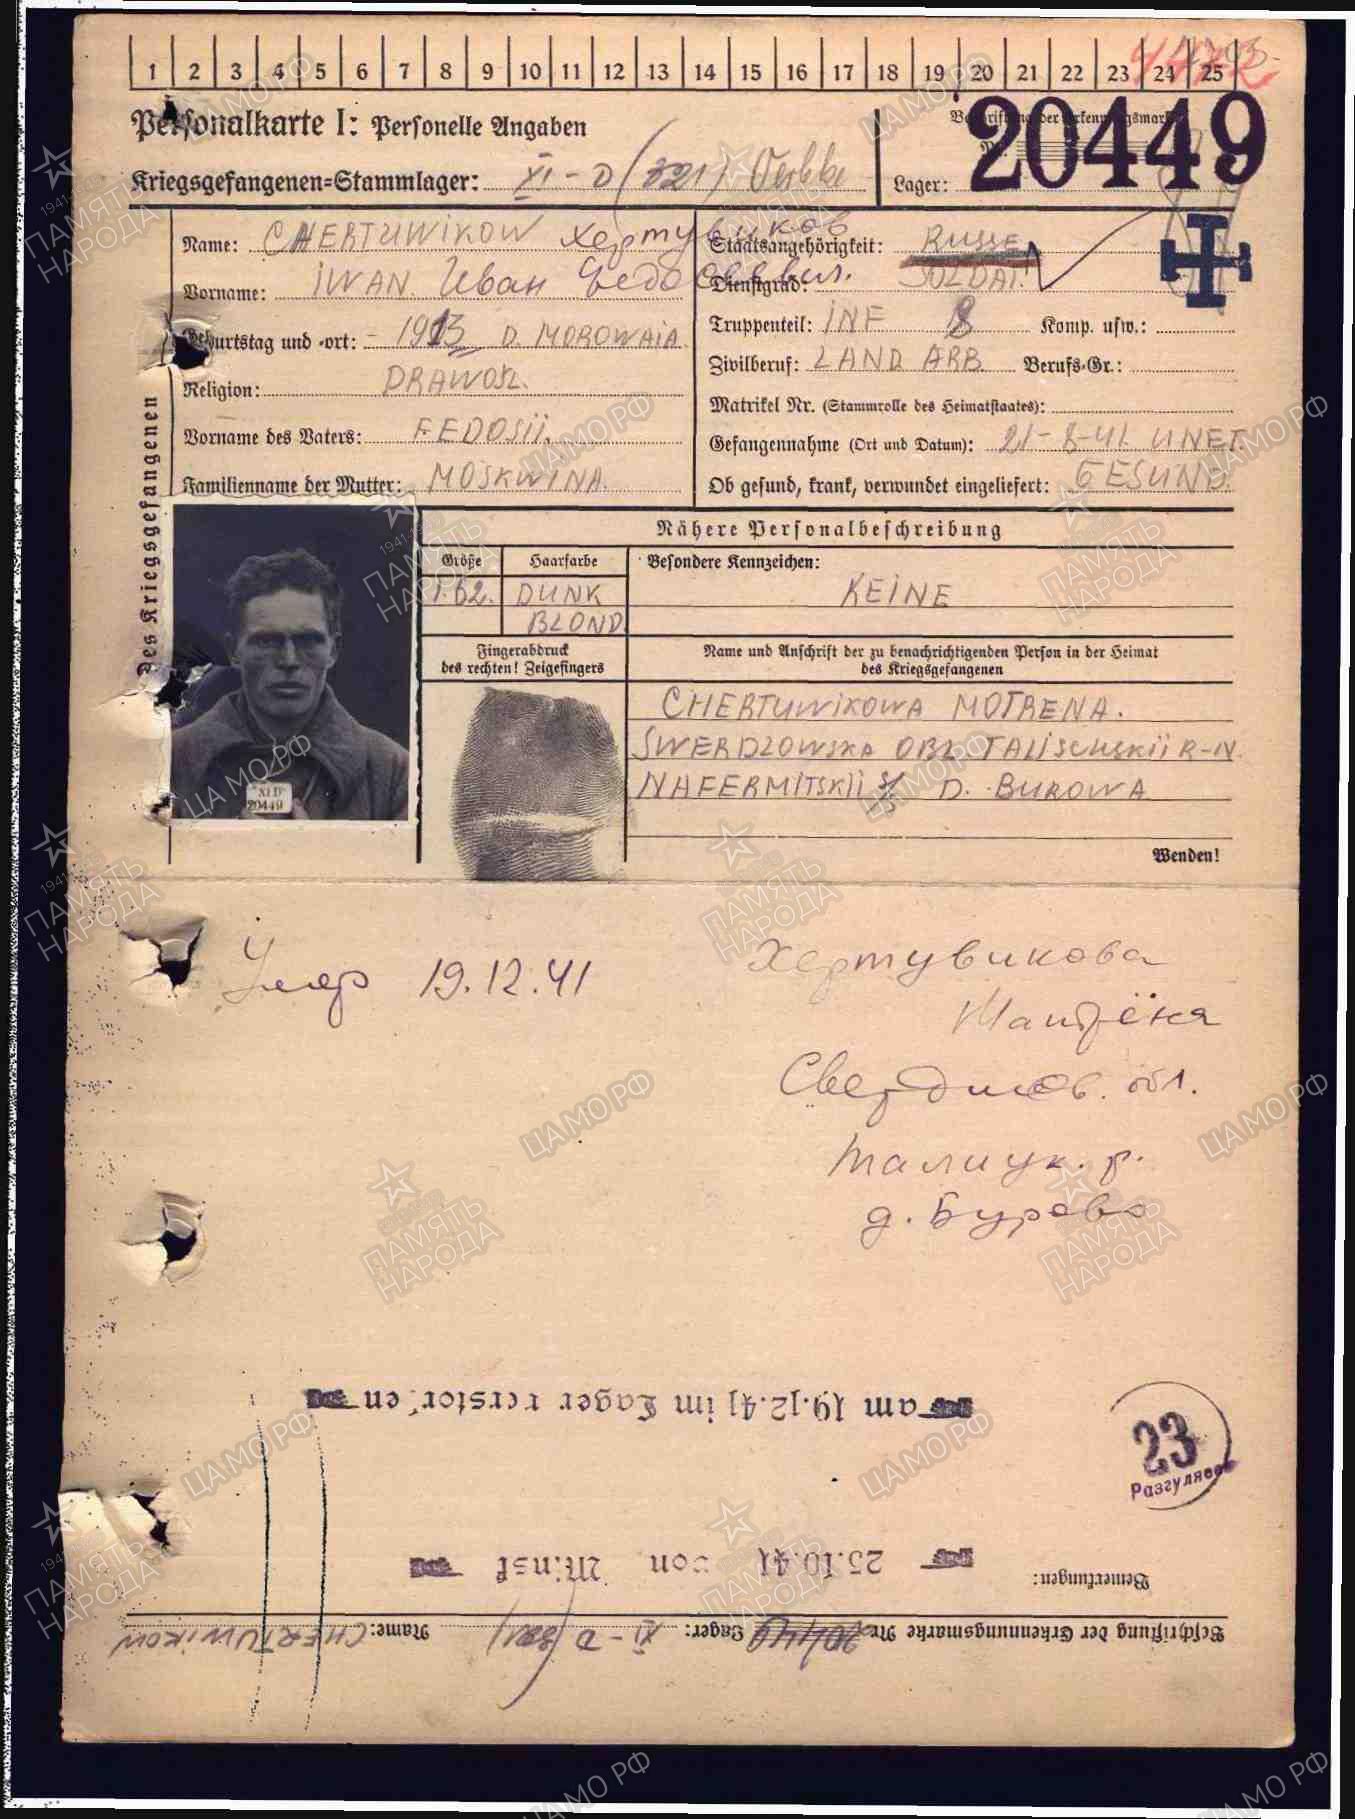 1 2 3 4 5 6 7 8 9 10 11 12 13 14 15 16 17 18 19 20 21 22 23 24 25
Personalkarte I: Personelle Angaben
Beschriftung der Erkennungsmarke
Nr. 20449
Kriegsgefangenen-Stammlager: XI-D (321) Oerbke
Lager:
Des Kriegsgefangenen
Name: CHERTUWIKOW Хертувиков
Vorname: IWAN. Иван
Geburtstag und -ort: - 1913 D. MOROWAIA
Religion: PRAWOSL.
Vorname des Vaters: FEDOSII.
Familienname der Mutter: MOSKWINA.
Staatsangehörigkeit: RUSSE
Dienstgrad: SOLDAT.
Truppenteil: INF 8 Komp. usw.:
Zivilberuf: LAND ARB. Berufs-Gr.:
Matrikel Nr. (Stammrolle des Heimatstaates):
Gefangennahme (Ort und Datum): 21-8-41. UNET.
Ob gesund, krank, verwundet eingeliefert: GESUND.
Nähere Personalbeschreibung
Größe
1.62.
Haarfarbe
DUNK
BLOND
Besondere Kennzeichen:
KEINE
Fingerabdruck
des rechten! Zeigefingers
Name und Anschrift der zu benachrichtigenden Person in der Heimat
des Kriegsgefangenen
CHERTUWIKOWA MOTRENA.
SWERDLOWSKA OBL. TALISCHSKII R-N.
NAFERMITSKII S/S D. BUROWA
XI D
20449
Wenden!
Умер 19.12.41
Хертувикова
Матрёна
Свердлов. обл.
Талицк. р.
д. Бурова
am 19.12.41 im Lager verstorben
23
Разгуляев
25.10.41 von Minsk
Bemerkungen:
Beschriftung der Erkennungsmarke Nr. 20449 Lager: XI-D (321) Name: CHERTUWIKOW
ПАМЯТЬ
НАРОДА
1941-1945
ЦАМО РФ